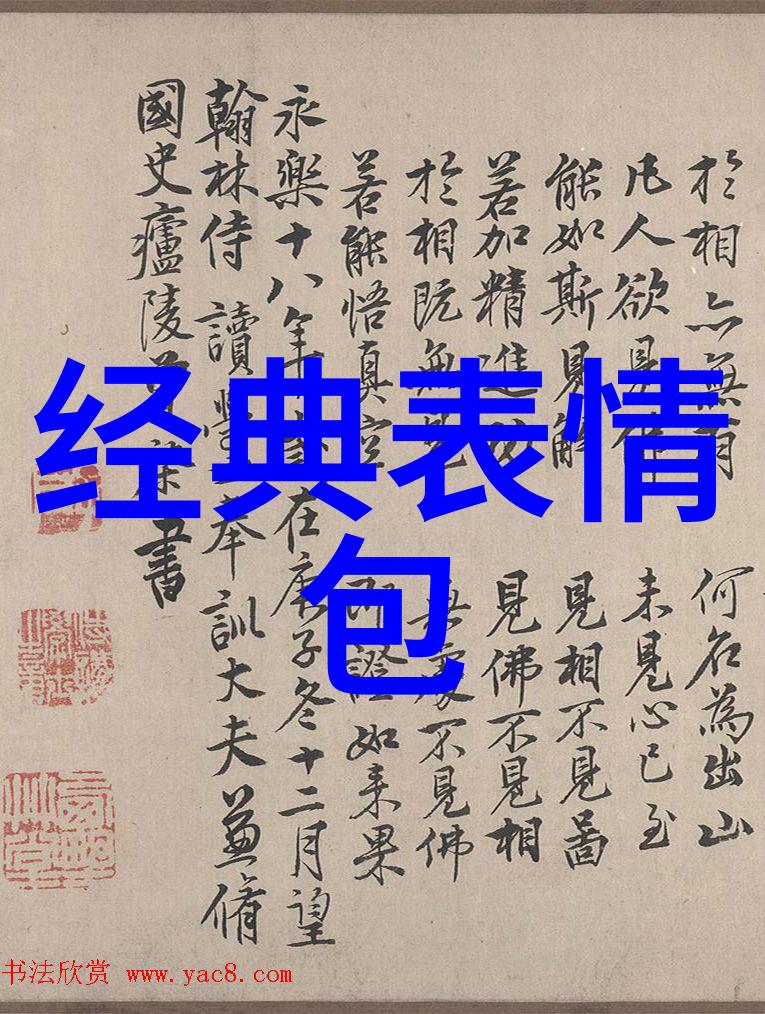 於相亦無有 何名為出山
凡人欲見佛 未見心已至
能如斯見解 見相不見啚
若加精進功 見佛不見相
於相既無見 無處不見佛
若能悟真空 即證如来果
永樂十八年歲在庚子冬十二月望
翰林侍讀學士奉訓大夫兼脩
國史廬陵曾棨書
经典表情
包
书法欣赏 www.yac8.com